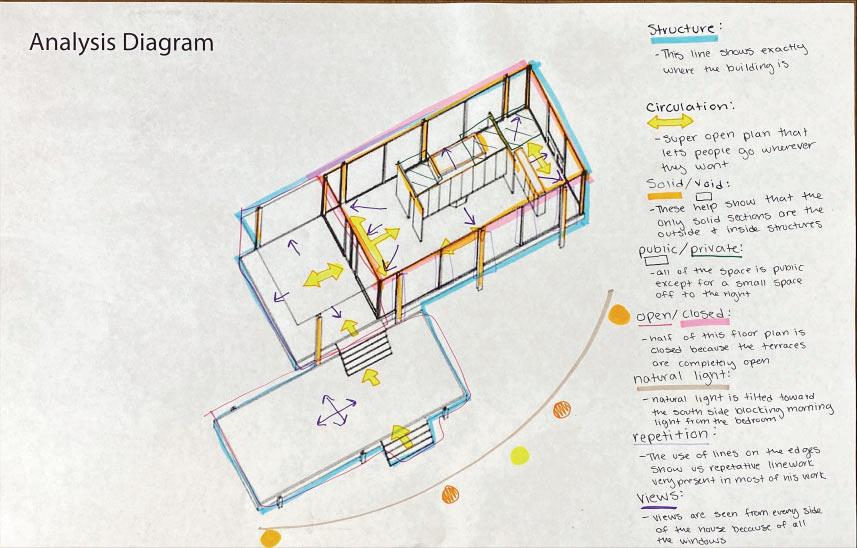 Analysis Diagram
Structure:
- This line shows exactly
where the building is
Circulation:
- super open plan that
lets people go wherever
they want
Solid/void:
- These help show that the
only solid sections are the
outside + inside structures
public/private:
- all of the space is public
except for a small space
off to the right
open/closed:
- half of this floor plan is
closed because the terraces
are completely open
natural light:
- natural light is tilted toward
the south side blocking morning
light from the bedroom
repetition:
- The use of lines on the edges
show us repetative linework
very present in most of his work
views:
- views are seen from every side
of the house because of all
the windows